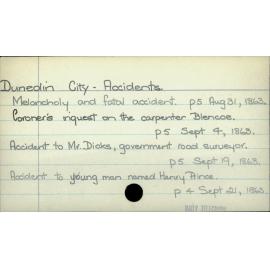 Dunedin City - Accidents.
Melancholy and fatal accident. p5 Aug 31, 1863.
Coroner's inquest on the carpenter Blencoe.
p5 Sept 4, 1863.
Accident to Mr. Dicks, government road surveyor.
p5 Sept 19, 1863.
Accident to young man named Henry Prince.
p 4 Sept 21, 1863.